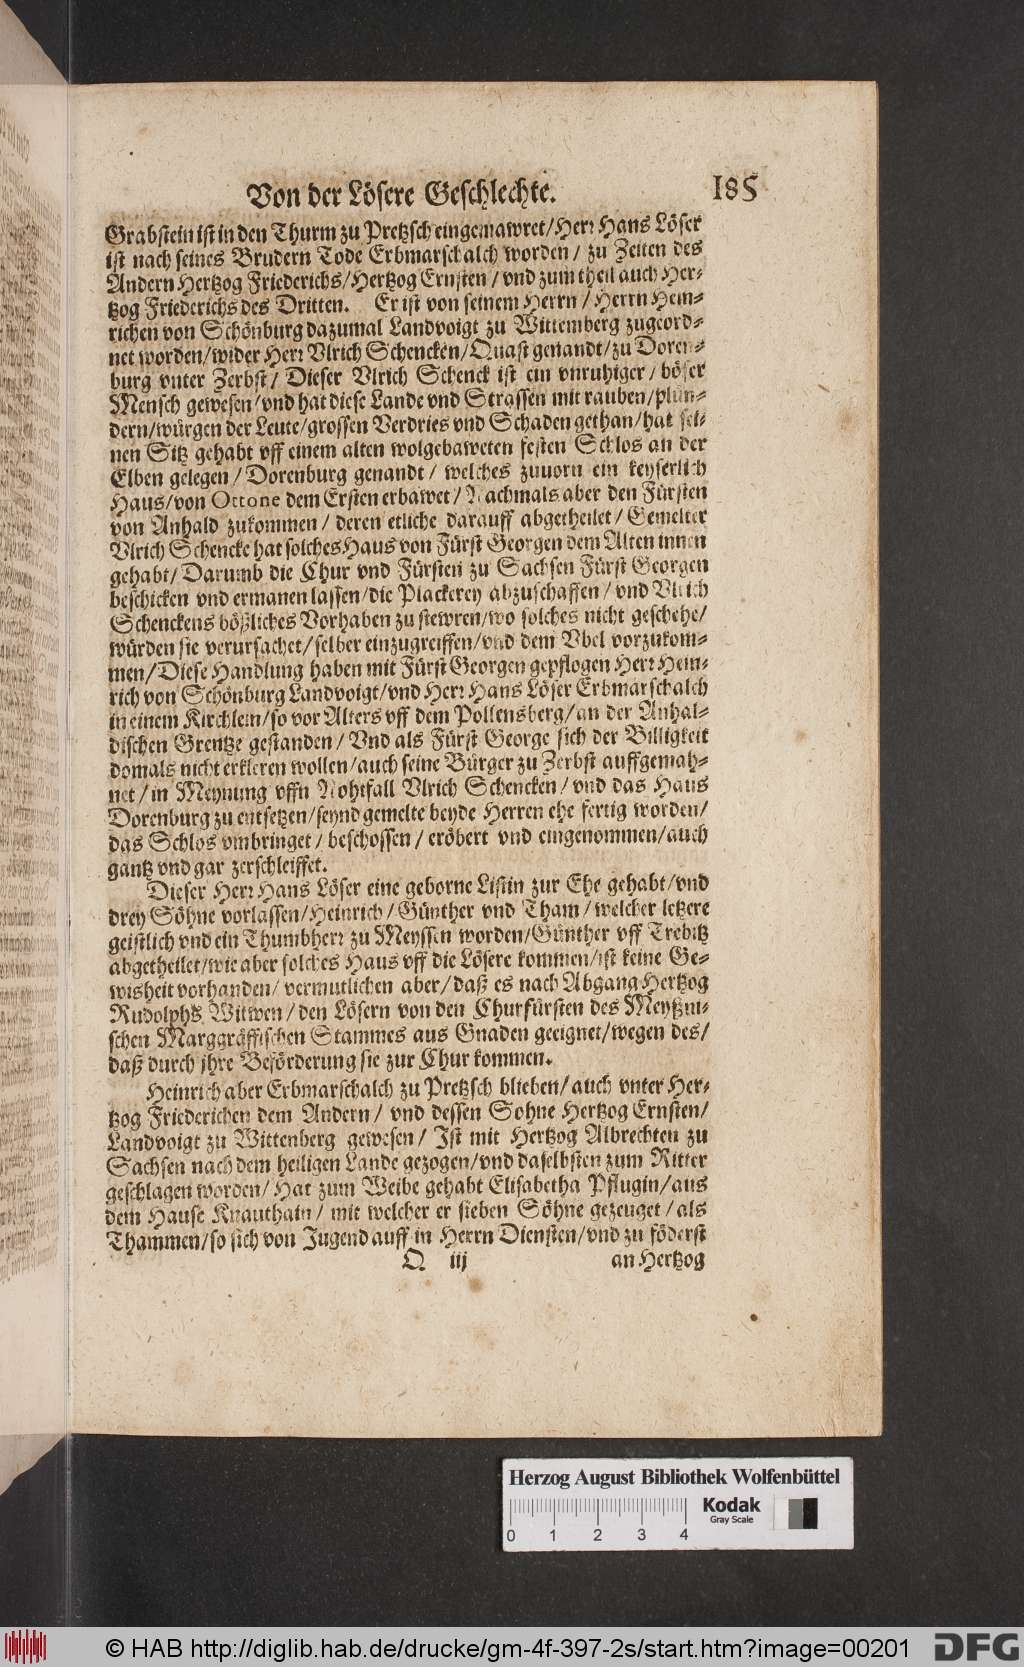 Von der Lösere Geschlechte. 185
Grabstein ist in den Thurm zu Pretzsch eingemawret/ Herr Hans Löser
ist nach seines Brudern Tode Erbmarschalch worden/ zu Zeiten des
Andern Hertzog Friederichs/ Hertzog Ernsten/ vnd zum theil auch Her-
tzog Friederichs des Dritten. Er ist von seinem Herrn/ Herrn Hein-
richen von Schönburg dazumal Landvoigt zu Wittemberg zugeord-
net worden/ wider Herr Vlrich Schencken/ Quast genandt/ zu Doren-
burg vnter Zerbst/ Dieser Vlrich Schenck ist ein vnruhiger/ böser
Mensch gewesen/ vnd hat diese Lande vnd Strassen mit rauben/ plün-
dern/ würgen der Leute/ grossen Verdries vnd Schaden gethan/ hat sei-
nen Sitz gehabt vff einem alten wolgebaweten festen Schlos an der
Elben gelegen/ Dorenburg genandt/ welches zuuorn ein keyserlich
Haus/ von Ottone dem Ersten erbawet/ Nachmals aber den Fürsten
von Anhald zukommen/ deren etliche darauff abgetheilet/ Gemelter
Vlrich Schencke hat solches Haus von Fürst Georgen dem Alten innen
gehabt/ Darumb die Chur vnd Fürsten zu Sachsen Fürst Georgen
beschicken vnd ermanen lassen/ die Plackerey abzuschaffen/ vnd Vlrich
Schenckens bößliches Vorhaben zu stewren/ wo solches nicht geschehe/
würden sie verursachet/ selber einzugreiffen/ vnd dem Vbel vorzukom-
men/ Diese Handlung haben mit Fürst Georgen gepflogen Herr Hein-
rich von Schönburg Landvoigt/ vnd Herr Hans Löser Erbmarschalch
in einem Kirchlein/ so vor Alters vff dem Pollensberg/ an der Anhal-
dischen Grentze gestanden/ Vnd als Fürst George sich der Billigkeit
domals nicht erkleren wollen/ auch seine Bürger zu Zerbst auffgemah-
net/ in Meynung vffn Nohtfall Vlrich Schencken/ vnd das Haus
Dorenburg zu entsetzen/ seynd gemelte beyde Herren ehe fertig worden/
das Schlos vmbringet/ beschossen/ eröbert vnd eingenommen/ auch
gantz vnd gar zerschleiffet.
Dieser Herr Hans Löser eine geborne Listin zur Ehe gehabt/ vnd
drey Söhne vorlassen/ Heinrich/ Günther vnd Tham/ welcher letzere
geistlich vnd ein Thumbherr zu Meyssen worden/ Günther vff Trebitz
abgetheilet/ wie aber solches Haus vff die Lösere kommen/ ist keine Ge-
wisheit vorhanden/ vermutlichen aber/ daß es nach Abgang Hertzog
Rudolphs Witwen/ den Lösern von den Churfürsten des Meyßni-
schen Marggräffischen Stammes aus Gnaden geeignet/ wegen des/
daß durch jhre Beförderung sie zur Chur kommen.
Heinrich aber Erbmarschalch zu Pretzsch blieben/ auch vnter Her-
tzog Friederichen dem Andern/ vnd dessen Sohne Hertzog Ernsten/
Landvoigt zu Wittenberg gewesen/ Ist mit Hertzog Albrechten zu
Sachsen nach dem heiligen Lande gezogen/ vnd daselbsten zum Ritter
geschlagen worden/ Hat zum Weibe gehabt Elisabetha Pflugin/ aus
dem Hause Knauthain/ mit welcher er sieben Söhne gezeuget/ als
Thammen/ so sich von Jugend auff in Herrn Diensten/ vnd zu föderst
Q iij an Hertzog
Herzog August Bibliothek Wolfenbüttel
Kodak
Gray Scale
0 1 2 3 4
© HAB http://diglib.hab.de/drucke/gm-4f-397-2s/start.htm?image=00201
DFG